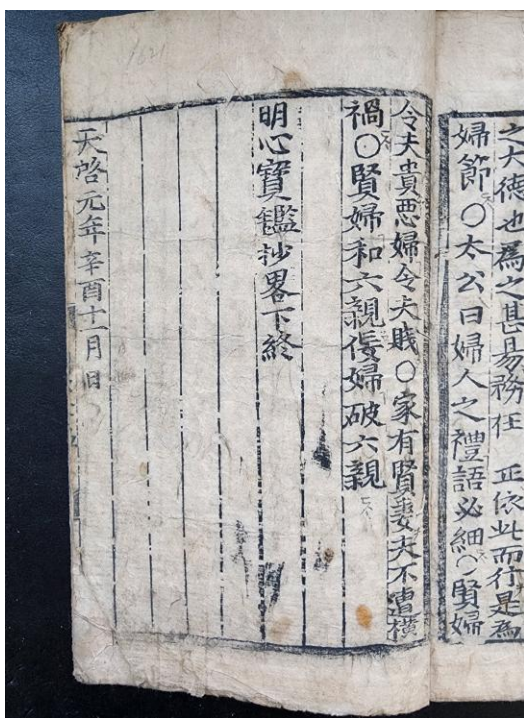 之大德也為之甚易務在 正依此而行是為
婦節〇太公曰婦人之禮語必細〇賢婦
令夫貴悪婦令夫賎〇家有賢妻夫不遭橫
禍〇賢婦和六親侫婦破六親
明心寶鑑抄畧下終
天啓元年辛酉十一月日
1621